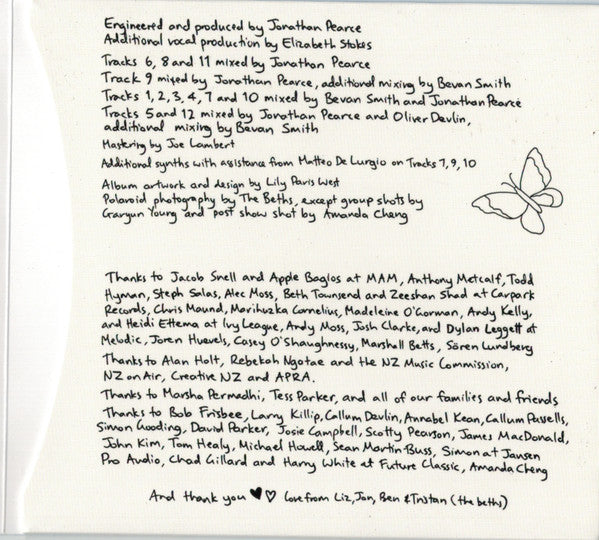 Engineered and produced by Jonathan Pearce
Additional vocal production by Elizabeth Stokes
Tracks 6, 8 and 11 mixed by Jonathan Pearce
Track 9 mixed by Jonathan Pearce, additional mixing by Bevan Smith
Tracks 1, 2, 3, 4, 7 and 10 mixed by Bevan Smith and Jonathan Pearce
Tracks 5 and 12 mixed by Jonathan Pearce and Oliver Devlin,
additional mixing by Bevan Smith
Mastering by Joe Lambert
Additional synths with assistance from Matteo De Lurgio on Tracks 7, 9, 10
Album artwork and design by Lily Paris West
Polaroid photography by The Beths, except group shots by
Garyun Young and post show shot by Amanda Cheng
Thanks to Jacob Snell and Apple Bagios at MAM, Anthony Metcalf, Todd
Hyman, Steph Salas, Alec Moss, Beth Townsend and Zeeshan Shad at Carpark
Records, Chris Maund, Marihuzka Cornelius, Madeleine O'Gorman, Andy Kelly,
and Heidi Ettema at Ivy League, Andy Moss, Josh Clarke, and Dylan Leggett at
Melodic, Joren Huevels, Casey O'Shaughnessy, Marshall Betts, Sören Lundberg
Thanks to Alan Holt, Rebekah Ngatae and the NZ Music Commission,
NZ on Air, Creative NZ and APRA.
Thanks to Marsha Permadhi, Tess Parker, and all of our families and friends
Thanks to Bob Frisbee, Larry Killip, Callum Devlin, Annabel Kean, Callum Passells,
Simon Gooding, David Parker, Josie Campbell, Scotty Pearson, James MacDonald,
John Kim, Tom Healy, Michael Howell, Sean Martin Buss, Simon at Jansen
Pro Audio, Chad Gillard and Harry White at Future Classic, Amanda Cheng
And thank you ♥♡ love from Liz, Jon, Ben & Tristan (the beths)